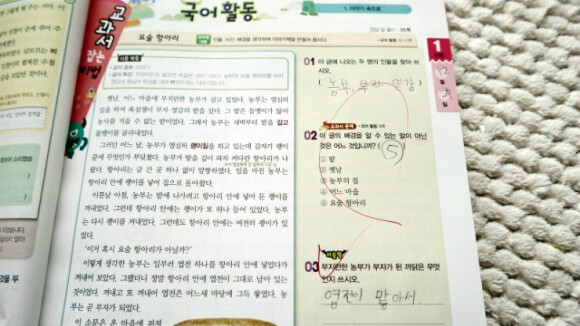 교과서 잡는 비법
국어 활동
1. 이야기 속으로
요술 항아리
인물, 사건, 배경을 생각하며 이야기책을 만들어 봅시다.
1
12월
옛날, 어느 마을에 부지런한 농부가 살고 있었다. 농부는 열심히
일을 하여 욕심쟁이 부자 영감의 밭을 샀다. 그 밭은 돌멩이가 많아
농사를 지을 수 없는 밭이었다. 그래서 농부는 새벽부터 밭을 갈고
돌멩이를 골라내었다.
그러던 어느 날, 농부가 열심히 괭이질을 하고 있는데 갑자기 괭이
끝에 무엇인가 부딪쳤다. 농부가 밭을 깊이 파자 커다란 항아리가 나
왔다. 항아리는 금 간 곳 하나 없이 말짱하였다. 일을 마친 농부는
항아리 안에 괭이를 넣어 집으로 돌아왔다.
이튿날 아침, 농부는 밭에 나가려고 항아리 안에 넣어 둔 괭이를
꺼내었다. 그런데 항아리 안에는 괭이가 또 하나 들어 있었다. 농부
는 다시 괭이를 꺼내었다. 그런데도 항아리 안에는 여전히 괭이가 있
었다.
'이거 혹시 요술 항아리가 아닐까?'
이렇게 생각한 농부는 일부러 엽전 하나를 항아리 안에 넣었다가
꺼내어 보았다. 그랬더니 정말 항아리 안에 엽전이 그대로 남아 있는
것이었다. 꺼내고 또 꺼내어 엽전은 어느새 마당에 그득 쌓였다. 농부
는 곧 부자가 되었다.
이 소문은 온 마을에 퍼져
01 이 글에 나오는 두 명의 인물을 찾아 쓰
시오.
( 농부, 부자 영감 )
02 이 글의 배경을 알 수 있는 말이 아닌
것은 어느 것입니까? ( ⑤ )
① 밭
② 옛날
③ 농부의 집
④ 어느 마을
⑤ 요술 항아리
03 부지런한 농부가 부자가 된 까닭은 무엇
인지 쓰시오.
엽전이 많아서.